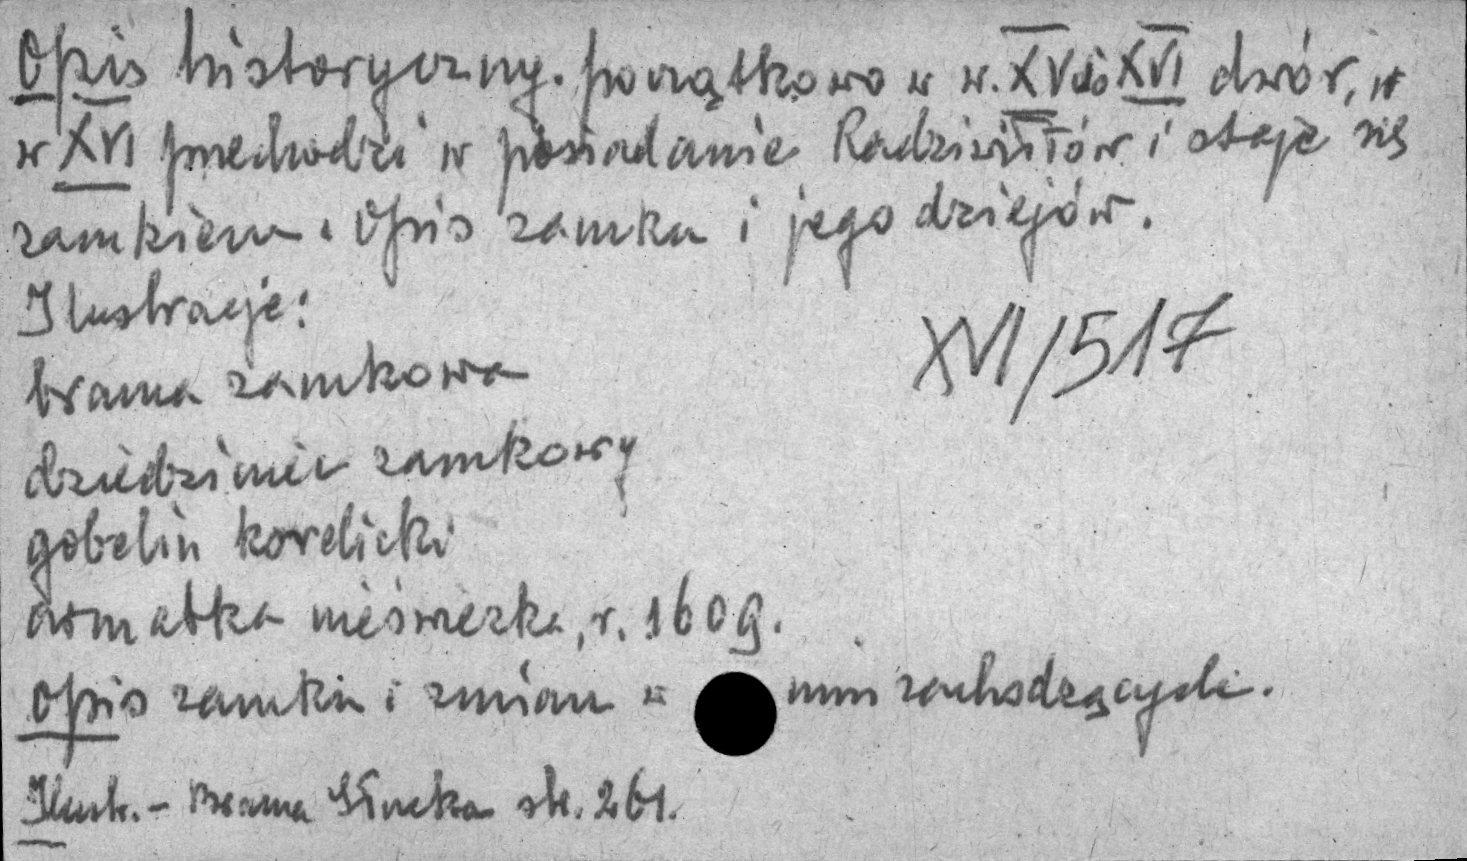 Opis historyczny. początkowo w w. XV do XVI dwór, w
w XVI przechodzi w posiadanie Radziwiłłów i staje się
zamkiem. Opis zamku i jego dziejów.
Ilustracje:
brama zamkowa
XVI/517
dziedziniec zamkowy
gobelin korelicki
armatka nieświeska, r. 1609.
Opis zamku i zmian w nim zachodzących.
Ilustr. - Brama Słucka str. 261.